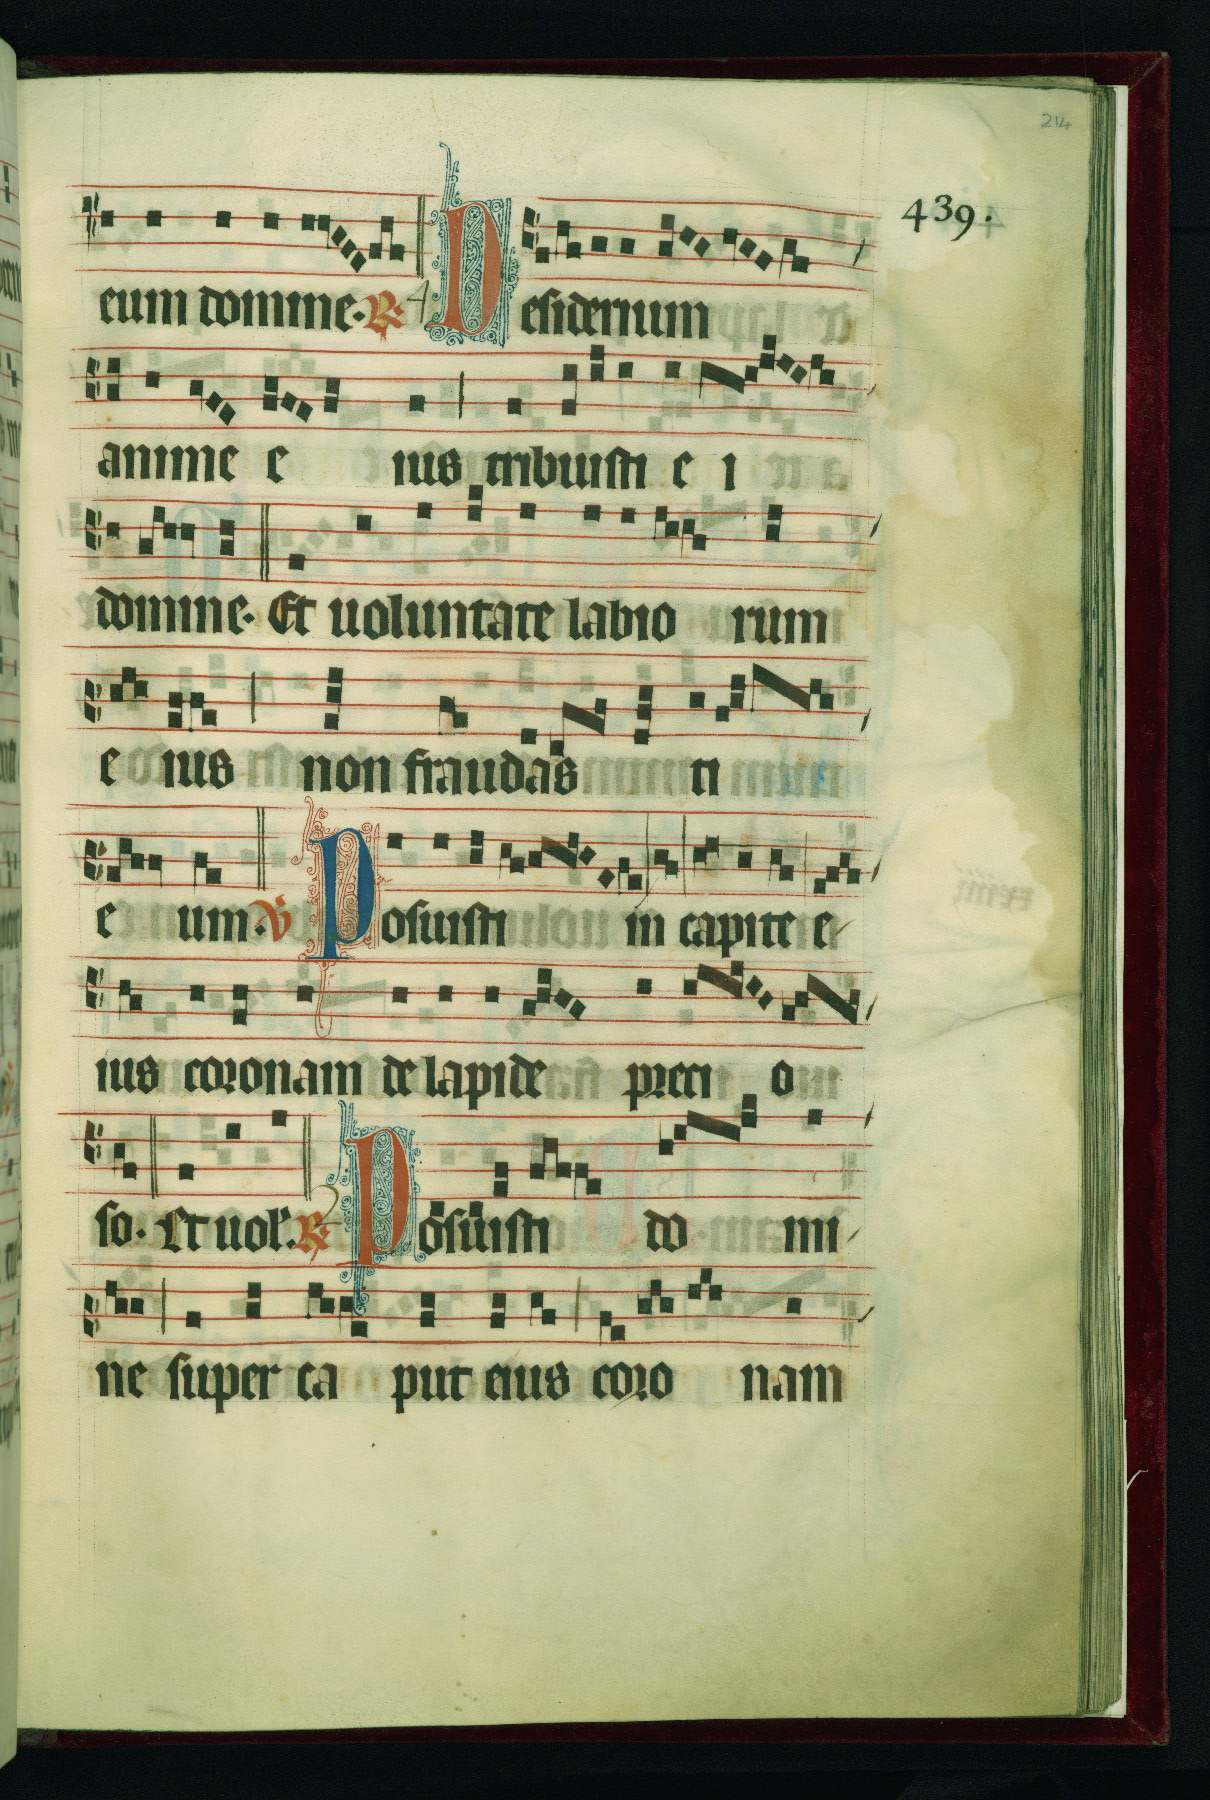 214
439.
eum domine. R 4 Desiderium
anime e ius tribuisti e i
domine. Et uoluntate labio rum
e ius non fraudas ti
e um. V Posuisti in capite e
ius coronam de lapide preci o
so. Et uol. R 2 Posuisti do mi
ne super ca put eius coro nam